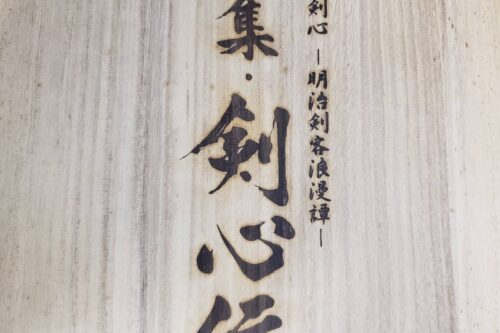 剣心 ―明治剣客浪漫譚―
集・剣心伝